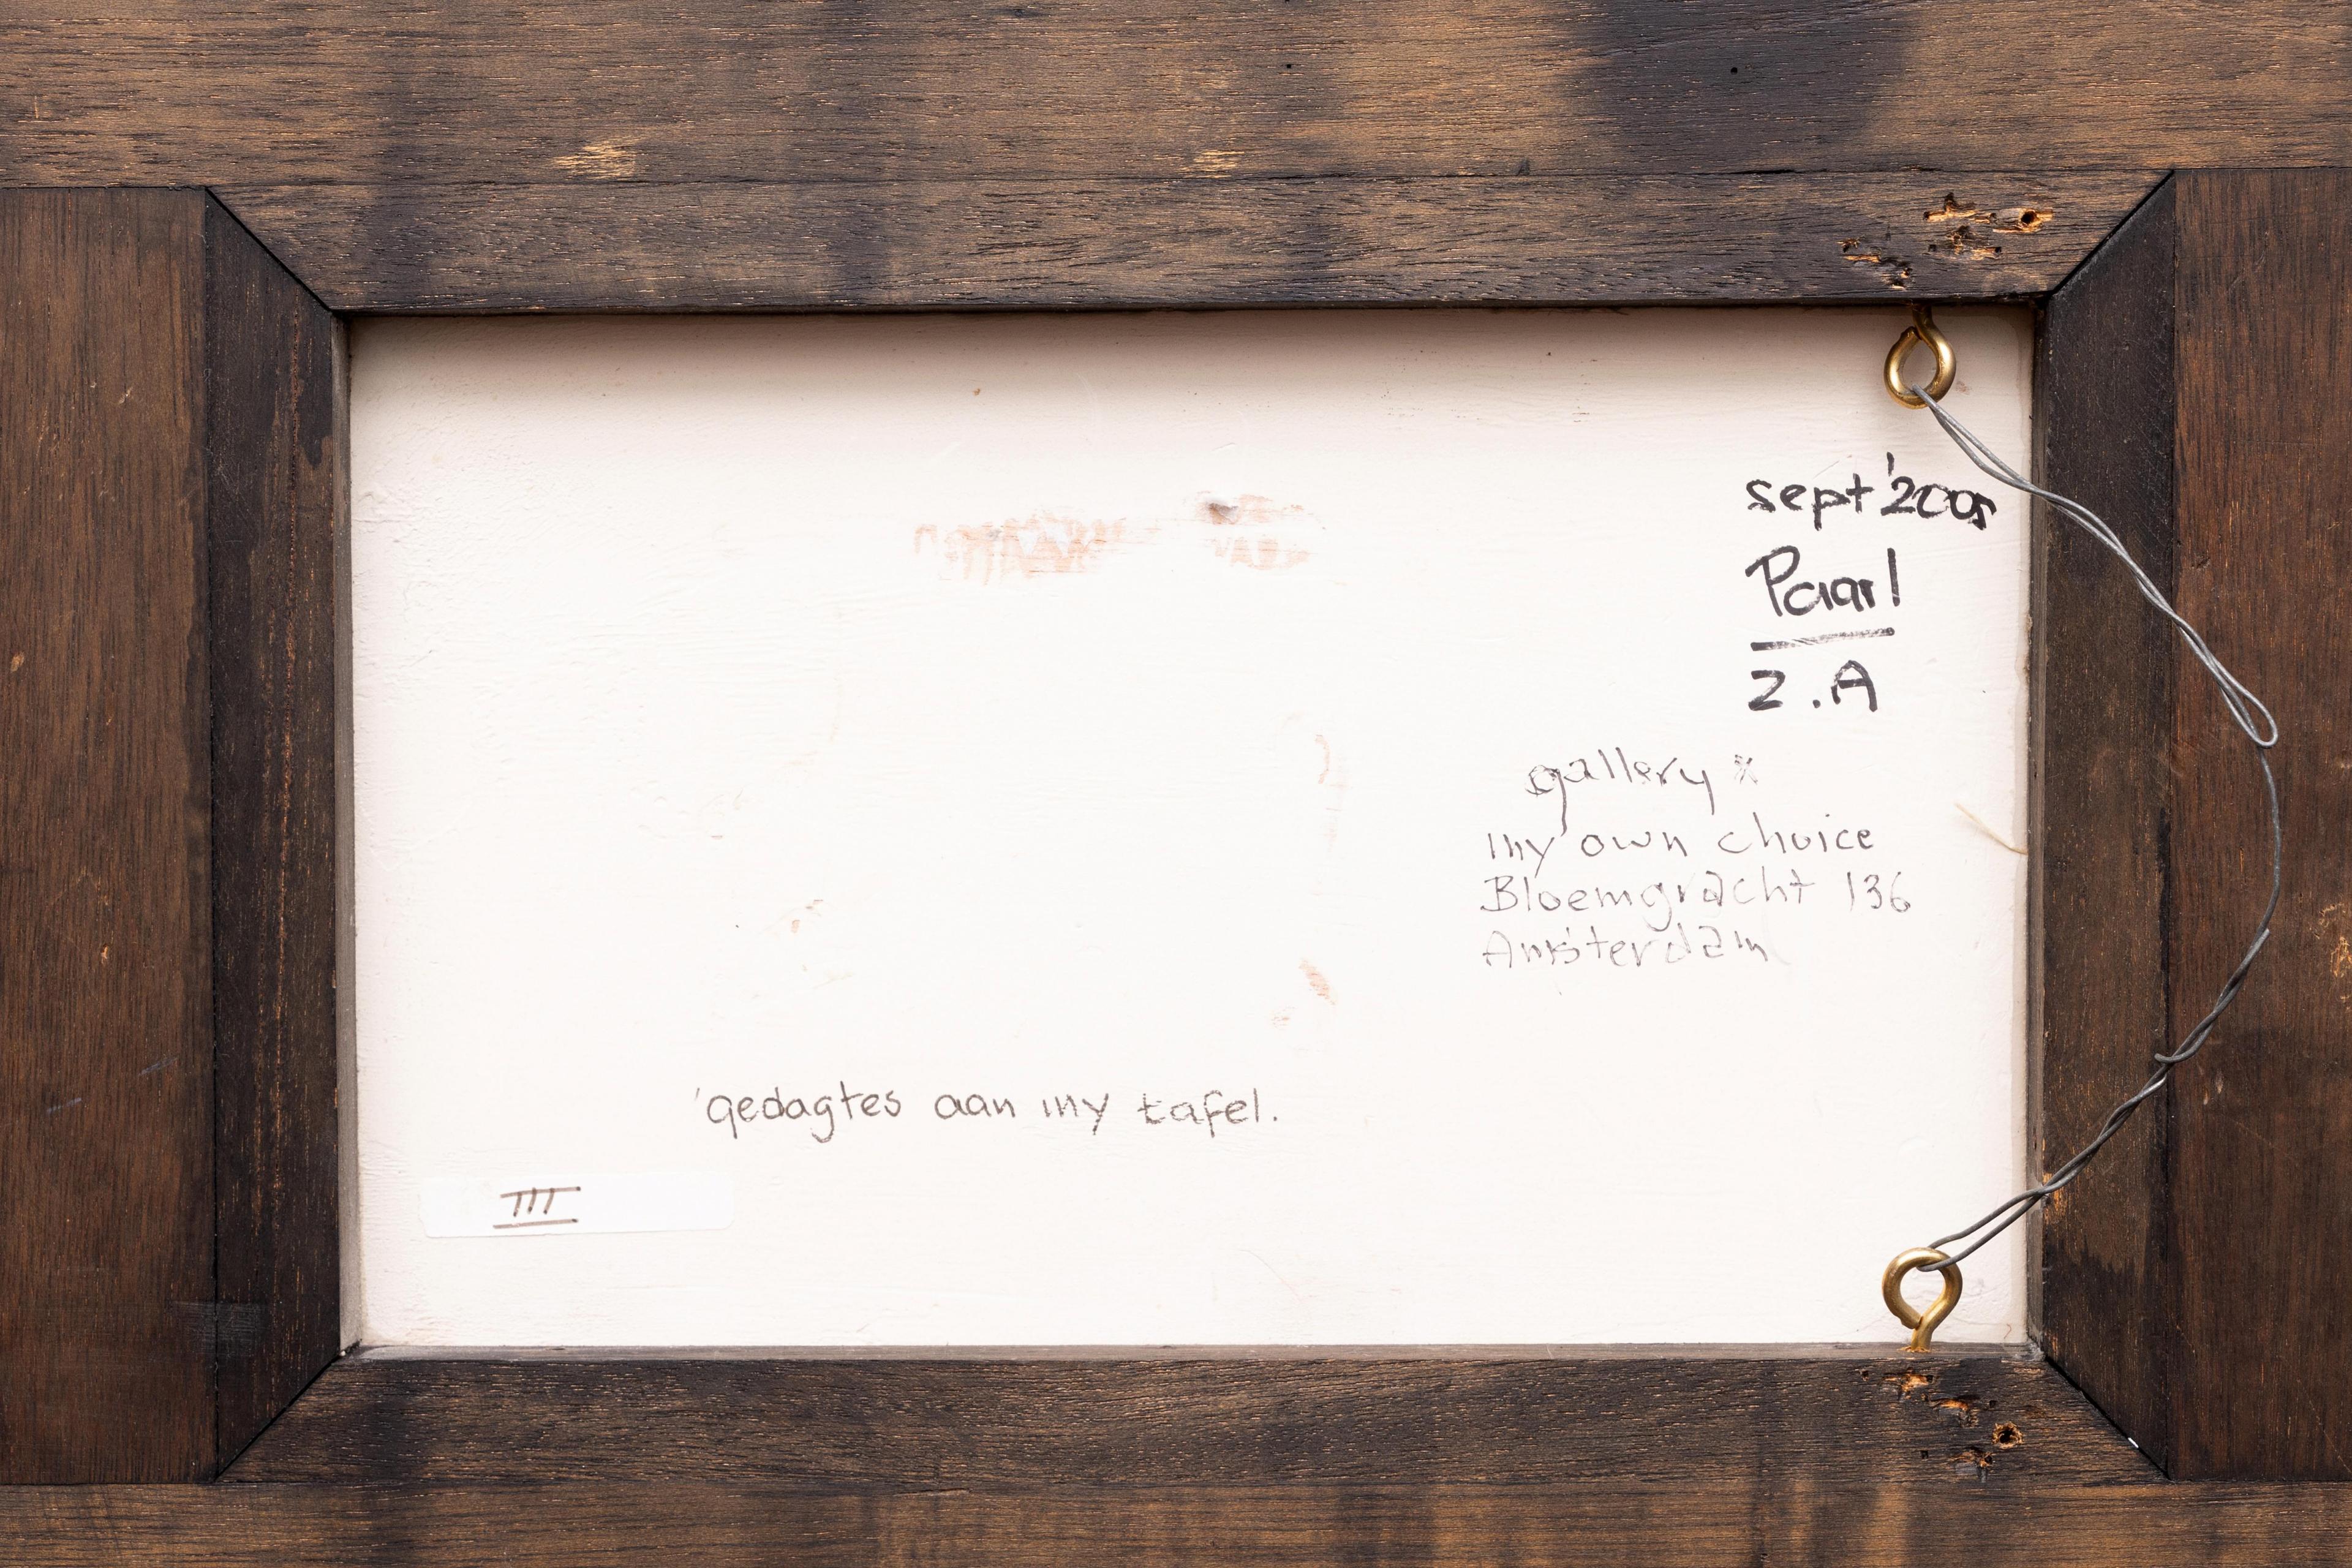 sept '2005
Paarl
Z.A
gallery *
my own choice
Bloemgracht 136
Amsterdam
'gedagtes aan my tafel.
III